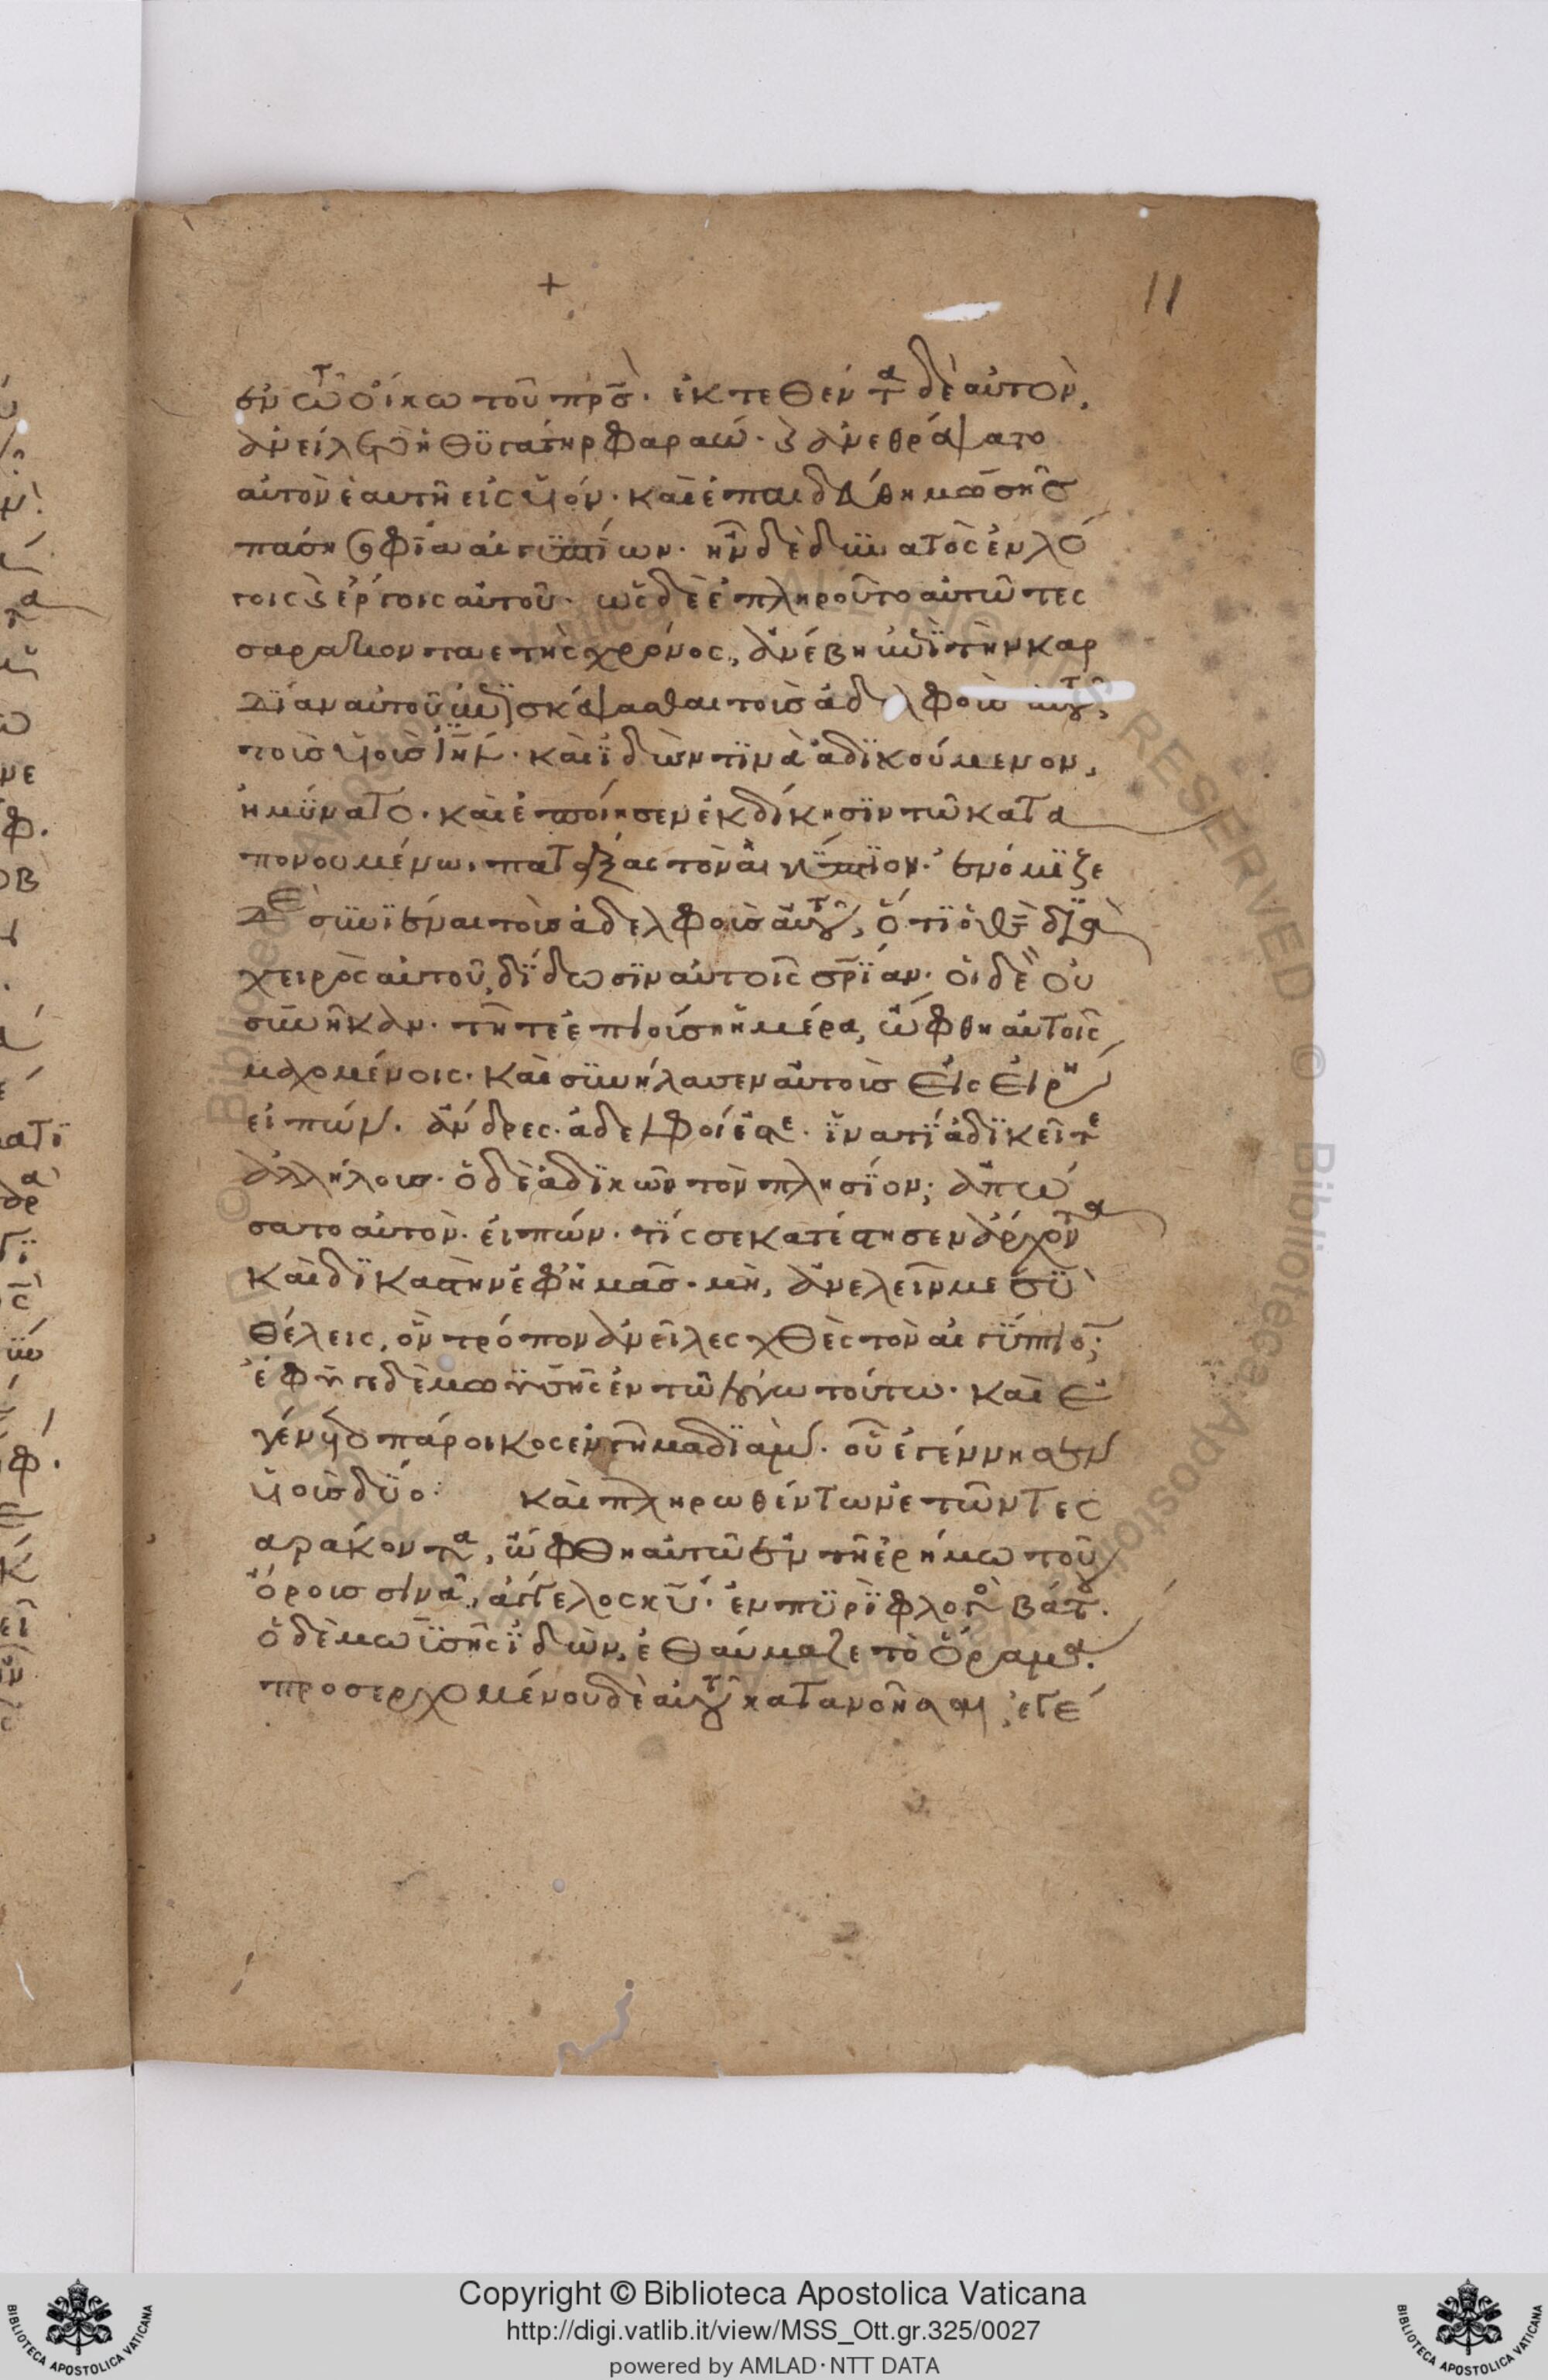 +
11
ἐν τῶ οἴκω τοῦ πρσ̀. ἐκτεθέντα δὲ αὐτὸν,
ἀνείλετο ἡ θϋγάτηρ φαραώ. καὶ ἀνεθρέψατο
αὐτὸν ἑαυτῆ εἰς υἱόν. καὶ ἐπαιδεύθη μωσῆσ
πάση σοφία αἰγϋπτίων. ἦν δὲ δϋνατὸς ἐν λό
γοις καὶ ἔργοις αὐτοῦ. ὡς δὲ ἐπληροῦτο αὐτῶ τεσ
σαρακονταετὴς χρόνος, ἀνέβη ἐπὶ τὴν καρ
δΐαν αὐτοῦ ἐπϊσκέψασθαι τοὺσ ἀδελφοὺσ αὐτοῦ,
τοὺσ υἱοὺσ ἰηλ. καὶ ἰδών τϊνὰ ἀδϊκούμενον,
ἠμϋνατο. καὶ ἐποίησεν ἐκδίκησϊν τῶ κατα
πονουμένω. πατάξας τὸν αἰγϋπτϊον. ἐνόμϊζε
δὲ σϋνϊέναι τοὺσ ἀδελφοὺσ αὐτοῦ, ὅτι ὁ θς διὰ
χειρὸς αὐτοῦ, δίδωσϊν αὐτοῖς σρΐαν. οἱ δὲ οὐ
σϋνῆκαν. τῆ τε ἐπιούση ἡμέρα, ὤφθη αὐτοῖς
μαχομένοις. καὶ σϋνήλασεν αὐτοὺσ εἰς εἰρή
εἰπών. ἄνδρες. ἀδελφοί ἐστε. ἵνα τΐ ἀδϊκεῖτε
ἀλλήλουσ. ὁ δὲ ἀδϊκῶν τὸν πλησΐον, ἀπώ
σατο αὐτὸν. εἰπών. τίς σε κατέστησεν ἄρχοντα
καὶ δϊκαστὴν ἐφ ἡμᾶσ. μὴ, ἀνελεῖν με σϋ
θέλεις, ὃν τρόπον ἀνεῖλες χθὲς τὸν αἰγϋπτιον;
ἔφϋγε δὲ μωϋσῆς ἐν τῶ λόγω τούτω. καὶ ἐ
γένετο πάροικος ἐν γῆ μαδϊάμ. οὗ ἐγέννησεν
υἱοὺσ δϋο. καὶ πληρωθέντων ἐτῶν τεσ
σαράκοντα, ὤφθη αὐτῶ ἐν τῆ ἐρήμω τοῦ
ὄρουσ σινᾶ, ἄγγελος κϋ. ἐν πϋρΐ φλογὸς βάτου.
ὁ δὲ μωϋσῆς ἰδὼν, ἐθαύμαζε τὸ ὅραμα.
προσερχομένου δὲ αὐτοῦ κατανοῆσαι, ἐγέ
Copyright © Biblioteca Apostolica Vaticana
http://digi.vatlib.it/view/MSS_Ott.gr.325/0027
powered by AMLAD·NTT DATA